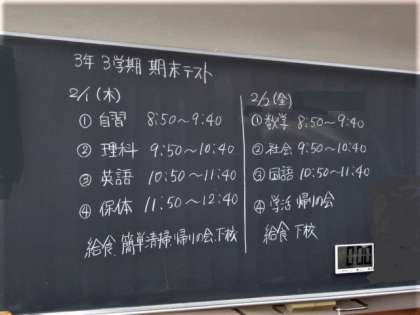 3年 3学期 期末テスト
2/1(木)
① 自習 8:50~9:40
② 理科 9:50~10:40
③ 英語 10:50~11:40
④ 保体 11:50~12:40
給食、簡単清掃、帰りの会、下校
2/2(金)
① 数学 8:50~9:40
② 社会 9:50~10:40
③ 国語 10:50~11:40
④ 学活 帰りの会
給食 下校